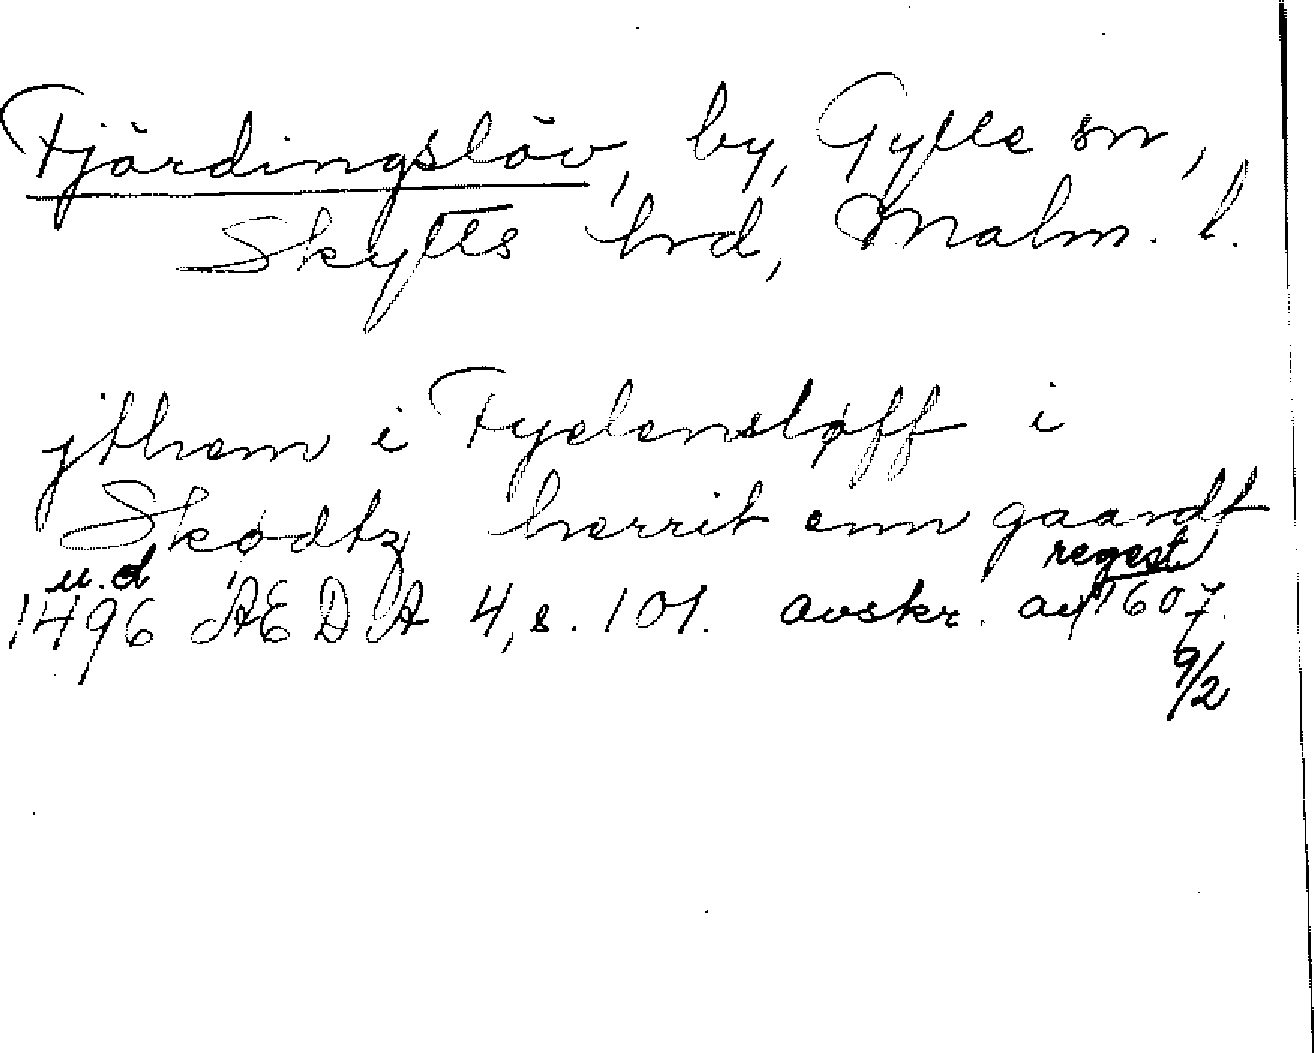 Fjärdingslöv, by, Gylle sn,
Skytts hrd, Malm. l.
jthem i Fyelensløff i
Skødtz herrit enn gaardt
u.d regest
1496 ÆDA 4, s. 101. avskr. av 1607.
9/2